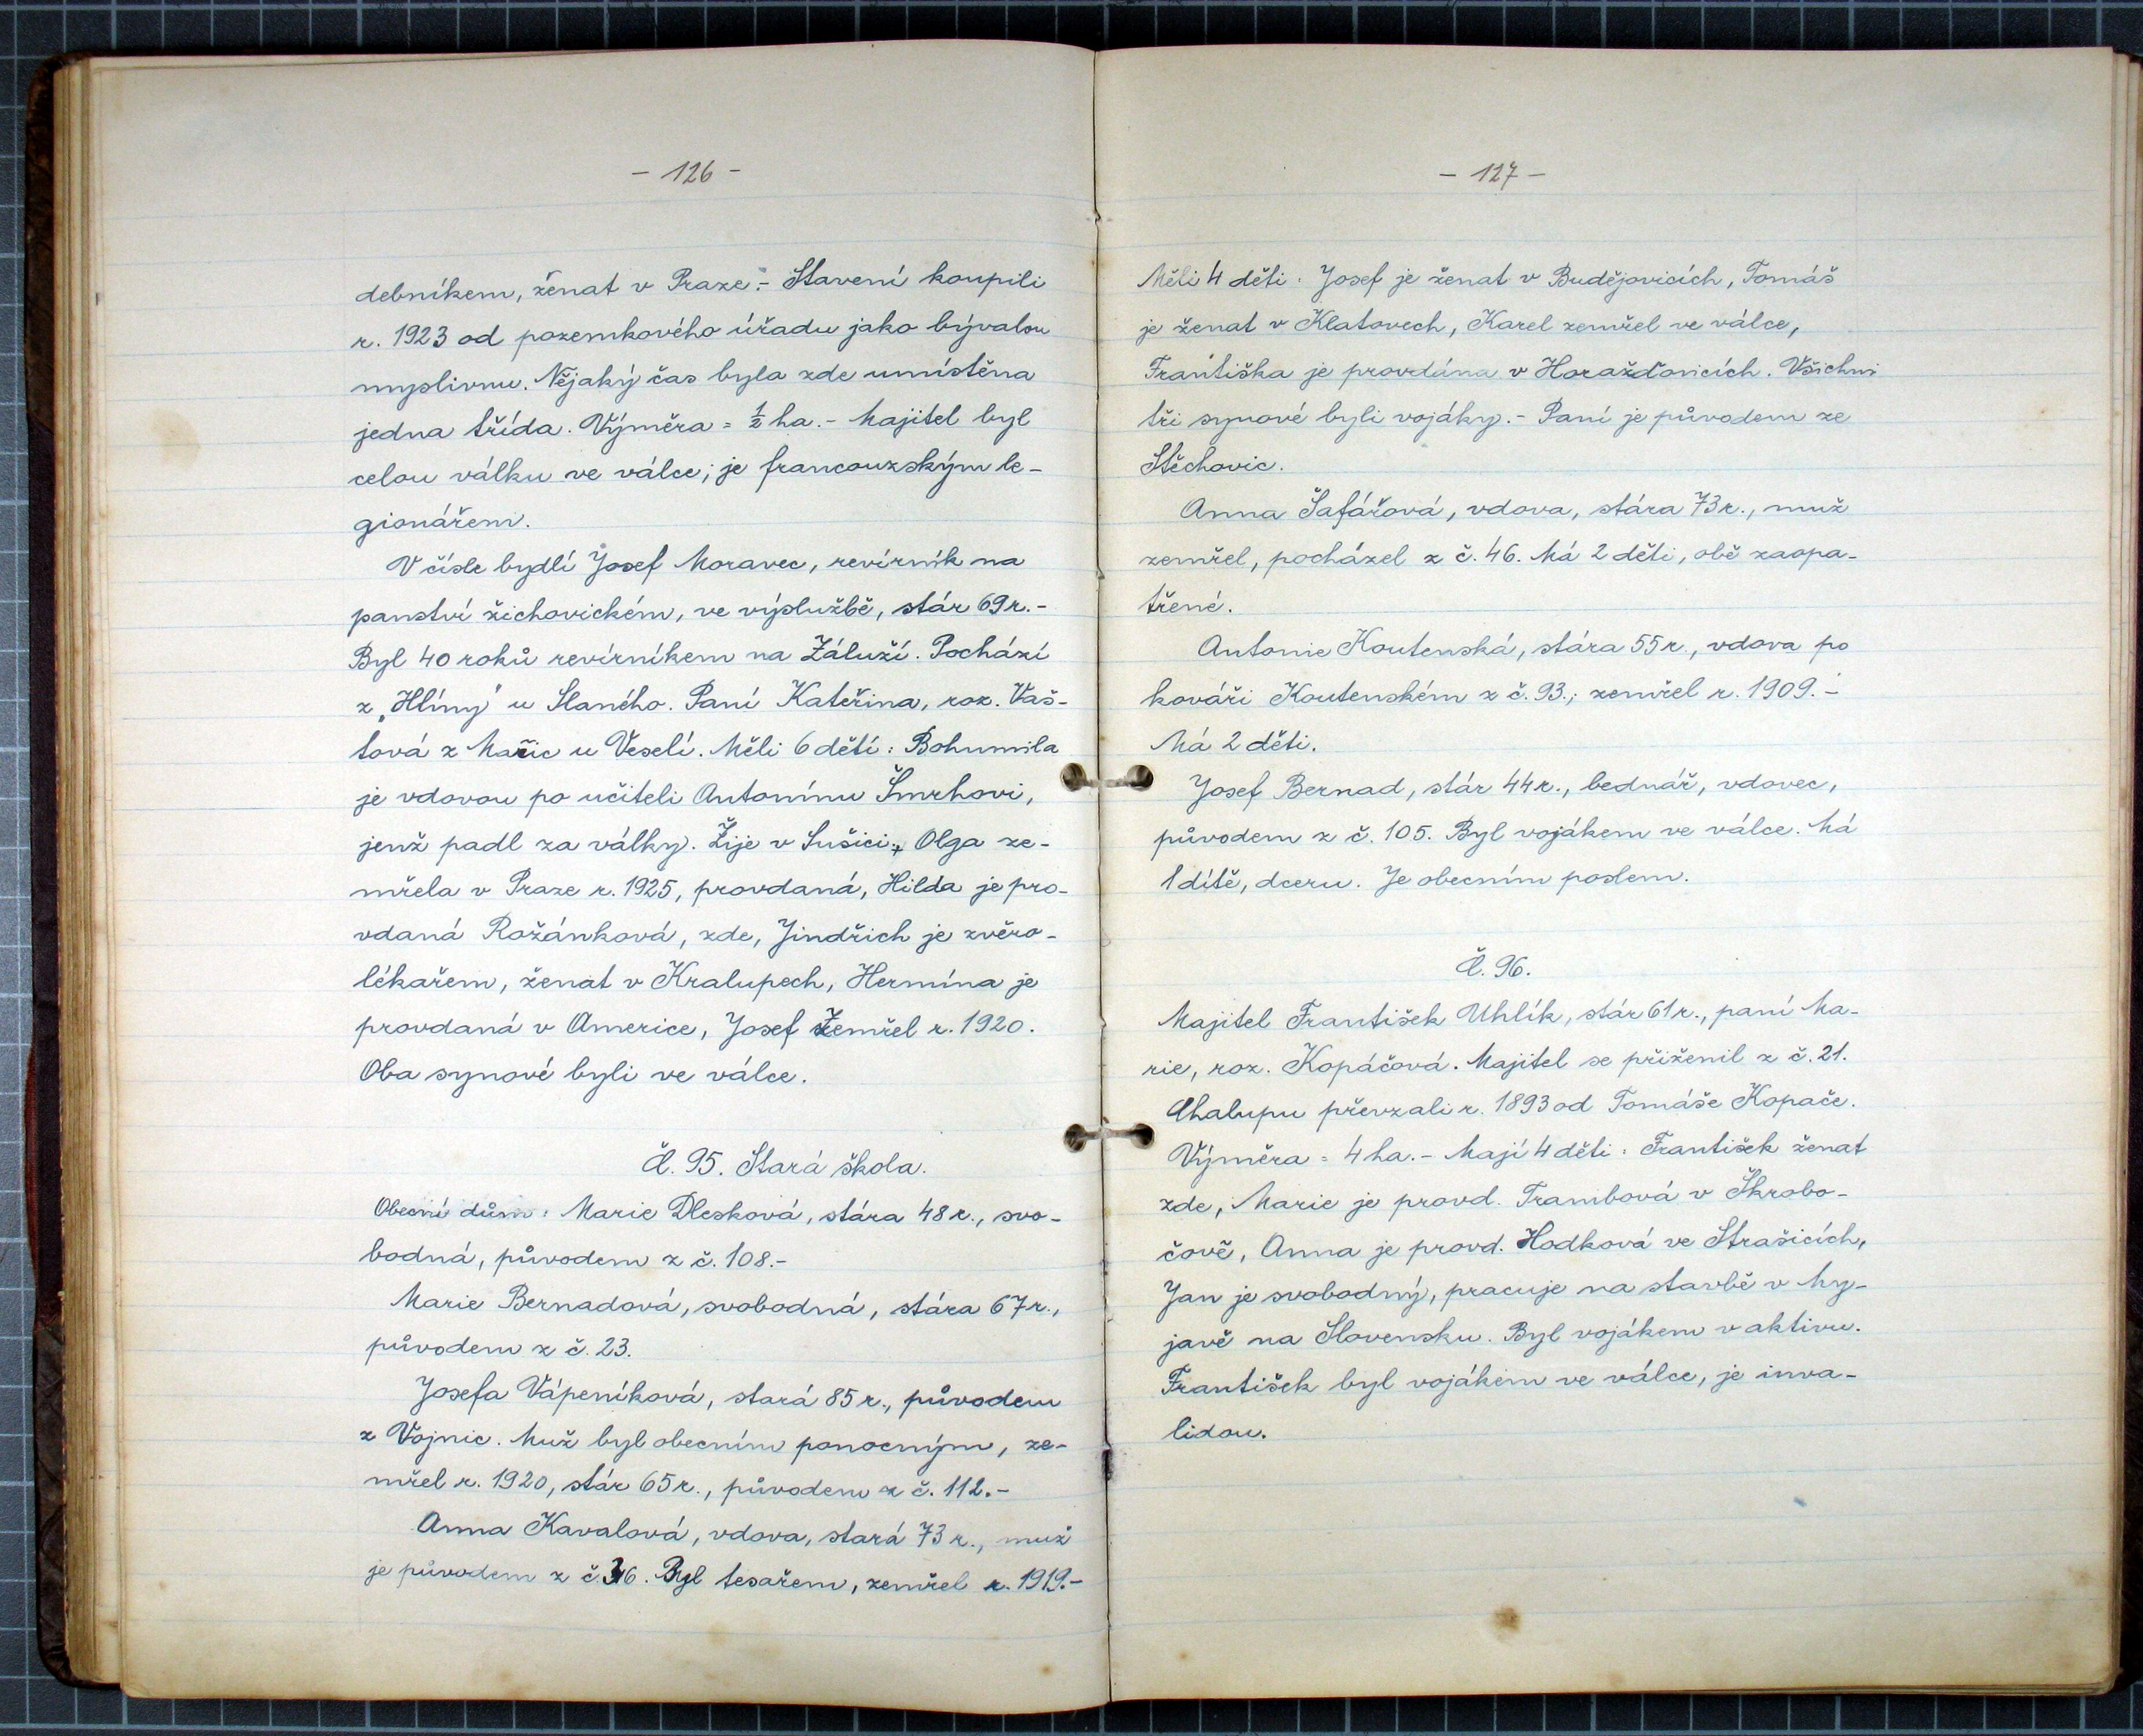 - 126 -
debníkem, ženat v Praze.- Stavení koupili
r. 1923 od pozemkového úřadu jako bývalou
myslivnu. Nějaký čas byla zde umístěna
jedna třída. Výměra = ½ ha.- Majitel byl
celou válku ve válce; je francouzským le-
gionářem.
V čísle bydlí Josef Moravec, revírník na
panství žichovickém, ve výslužbě, stár 69 r.-
Byl 40 roků revírníkem na Záluží. Pochází
z „Hlíny" u Slaného. Paní Kateřina, roz. Vaš-
tová z Mařic u Veselí. Měli 6 dětí: Bohumila
je vdovou po učiteli Antonínu Šmrhovi,
jenž padl za války. Žije v Sušici, Olga ze-
mřela v Praze r. 1925, provdaná, Hilda je pro-
vdaná Rožánková, zde, Jindřich je zvěro-
lékařem, ženat v Kralupech, Hermína je
provdaná v Americe, Josef zemřel r. 1920.
Oba synové byli ve válce.
Č. 95. Stará škola.
Obecní dům: Marie Dlesková, stára 48 r., svo-
bodná, původem z č. 108.-
Marie Bernadová, svobodná, stára 67 r.,
původem z č. 23.
Josefa Vápeníková, stará 85 r., původem
z Vojnic. Muž byl obecním ponocným, ze-
mřel r. 1920, stár 65 r., původem z č. 112.-
Anna Kavalová, vdova, stará 73 r., muž
je původem z č. Byl tesařem, zemřel r. 1919.-
- 127 -
Měli 4 děti: Josef je ženat v Budějovicích, Tomáš
je ženat v Klatovech, Karel zemřel ve válce,
Františka je provdána v Horažďovicích. Všichni
tři synové byli vojáky.- Paní je původem ze
Stěchovic.
Anna Šafářová, vdova, stára 73 r., muž
zemřel, pocházel z č. 46. Má 2 děti, obě zaopa-
třené.
Antonie Koutenská, stára 55 r., vdova po
kováři Koutenském z č. 93.; zemřel r. 1909.-
Má 2 děti.
Josef Bernad, stár 44 r., bednář, vdovec,
původem z č. 105. Byl vojákem ve válce. Má
1 dítě, dceru. Je obecním poslem.
Č. 96.
Majitel František Uhlík, stár 61 r., paní Ma-
rie, roz. Kopáčová. Majitel se přiženil z č. 21.
Chalupu převzali r. 1893 od Tomáše Kopače.
Výměra = 4 ha.- Mají 4 děti: František ženat
zde, Marie je provd. Trambová v Škrobo-
čově, Anna je provd. Hodková ve Strašicích,
Jan je svobodný, pracuje na stavbě v My-
javě na Slovensku. Byl vojákem v aktivu.
František byl vojákem ve válce, je inva-
lidou.